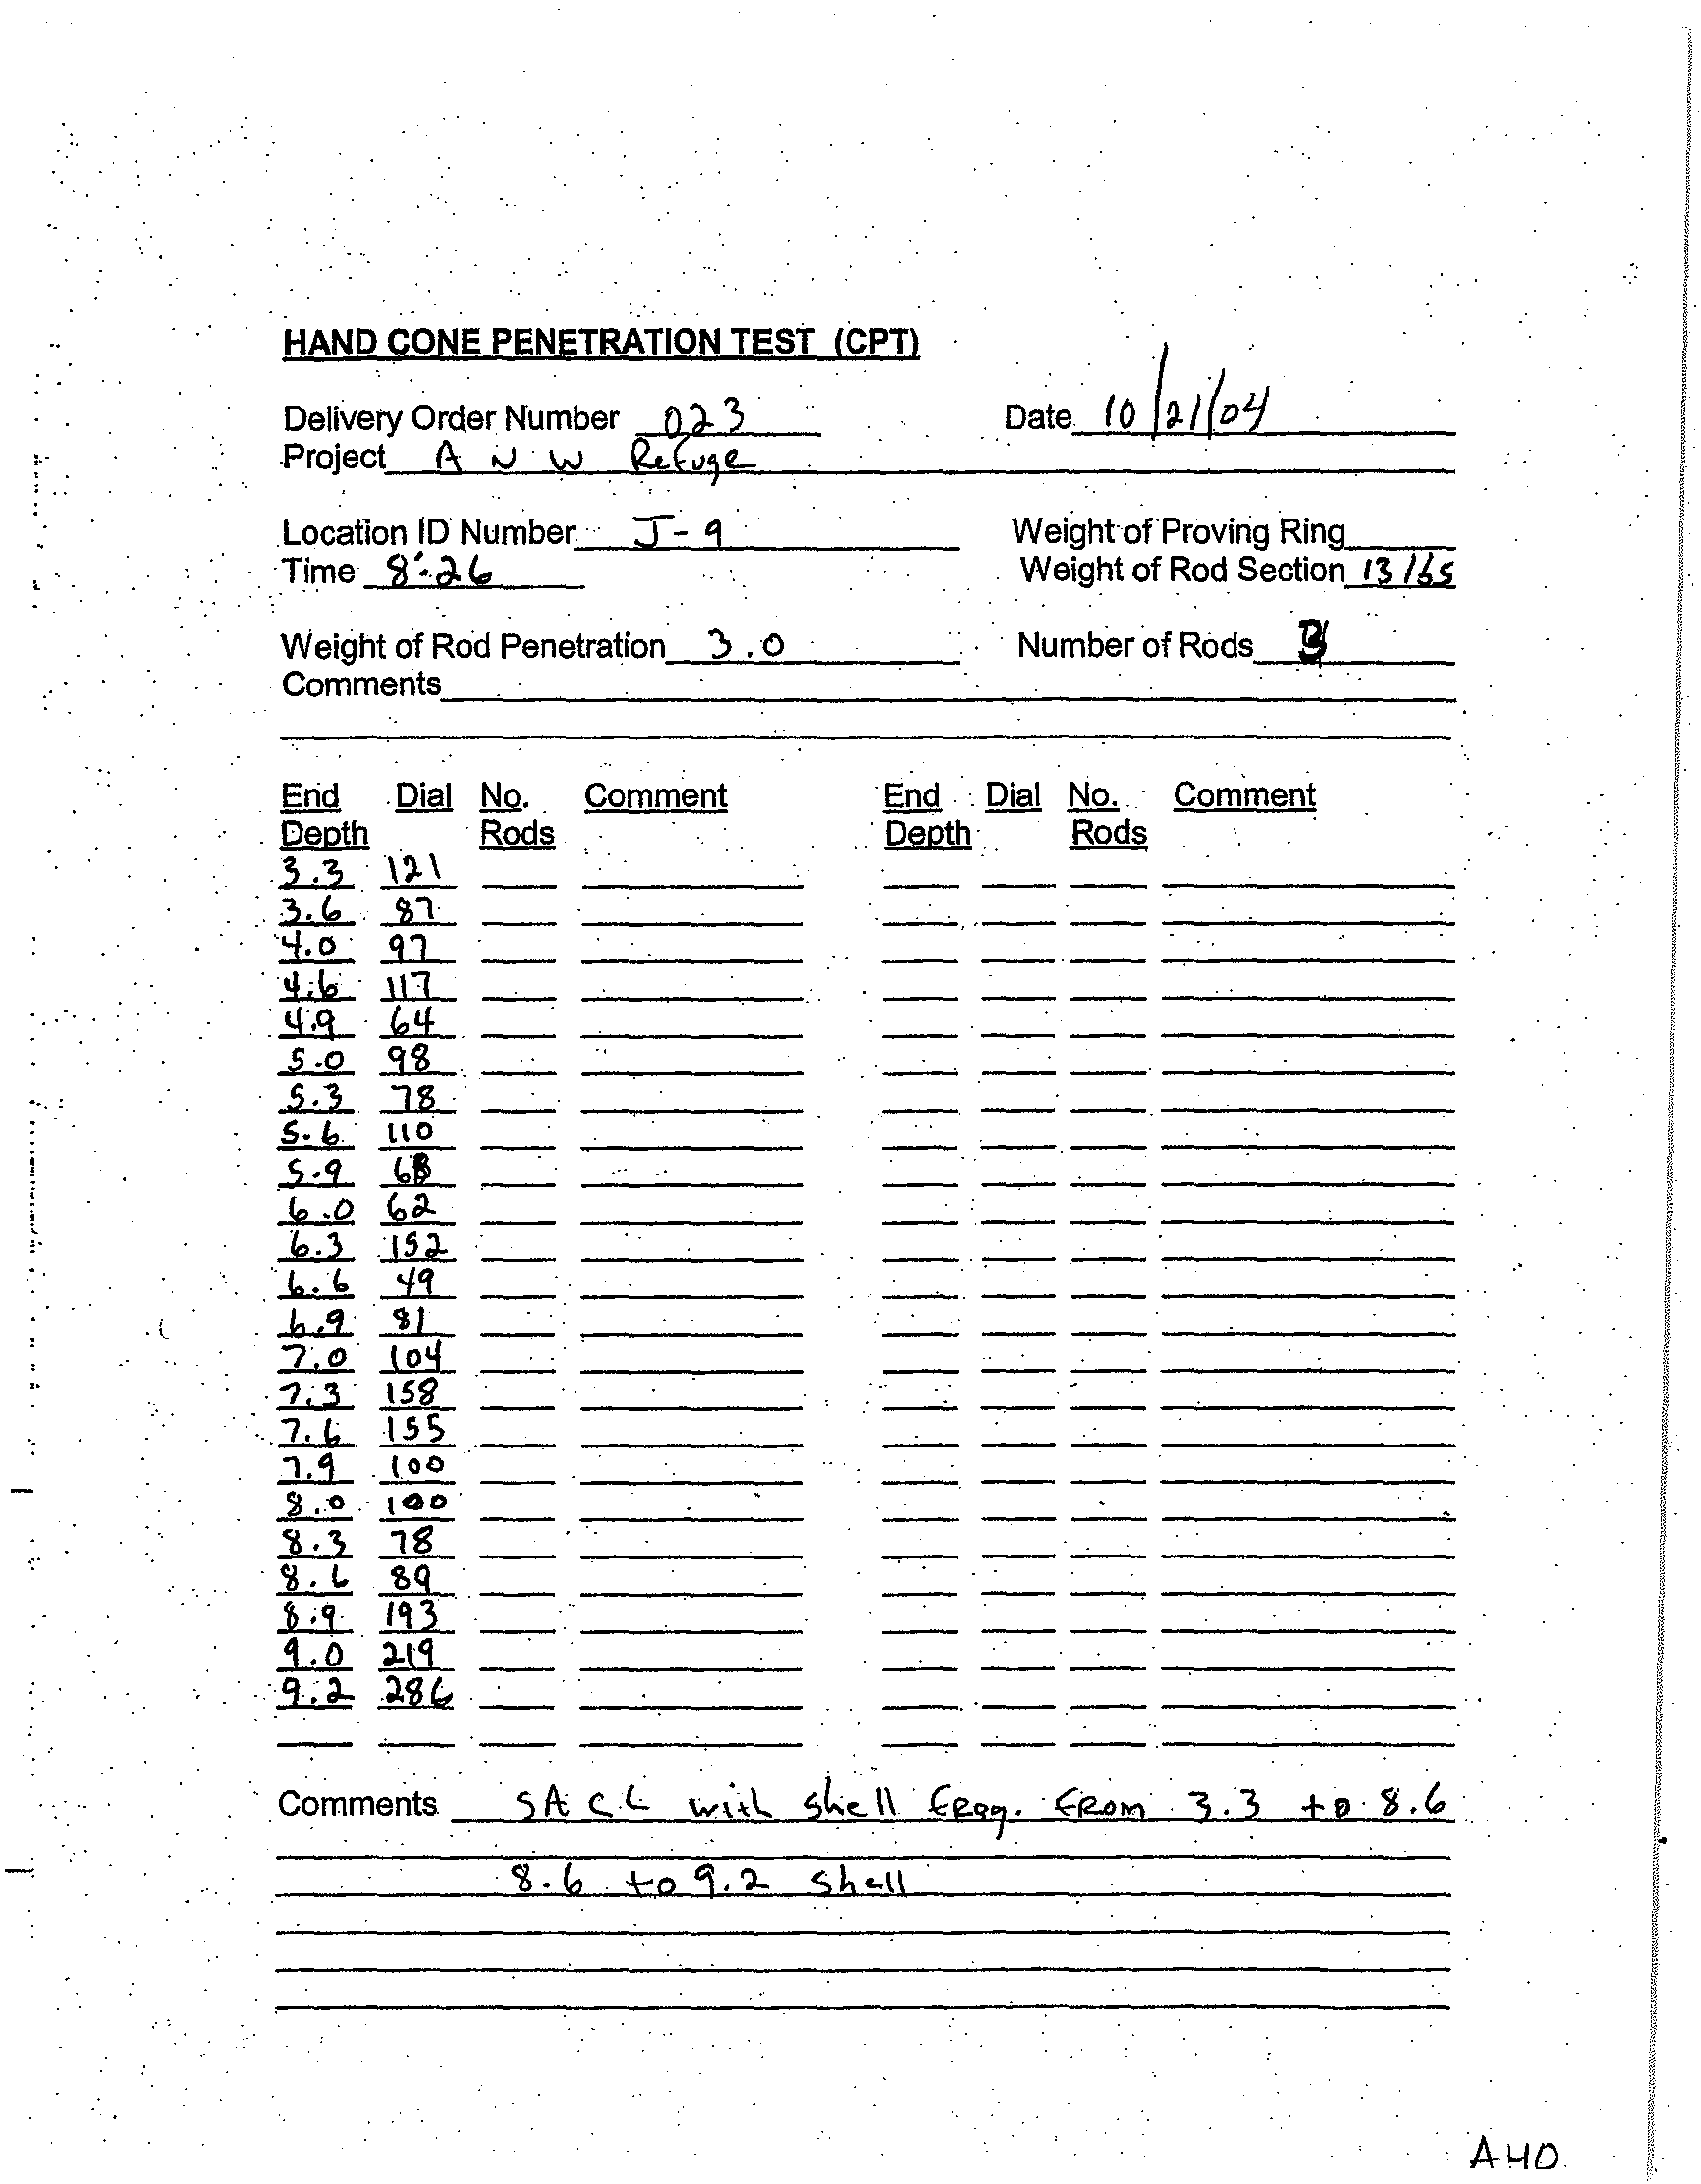 HAND CONE PENETRATION TEST (CPT)
Delivery Order Number 023 Date 10/21/04
Project A N W Refuge
Location ID Number J-9 Weight of Proving Ring
Time 8:26 Weight of Rod Section 13 lbs
Weight of Rod Penetration 3.0 Number of Rods
Comments
End Dial No. Comment End Dial No. Comment
Depth Rods Depth Rods
3.3 121
3.6 87
4.0 97
4.6 117
4.9 64
5.0 98
5.3 78
5.6 110
5.9
6.0 62
6.3 152
6.6 49
6.9 81
7.0 104
7.3 158
7.6 155
7.9 100
8.0 100
8.3 78
8.6 89
8.9 193
9.0 219
9.2 286
Comments with shell frag. from 3.3 to 8.6
8.6 to 9.2 shell
A40